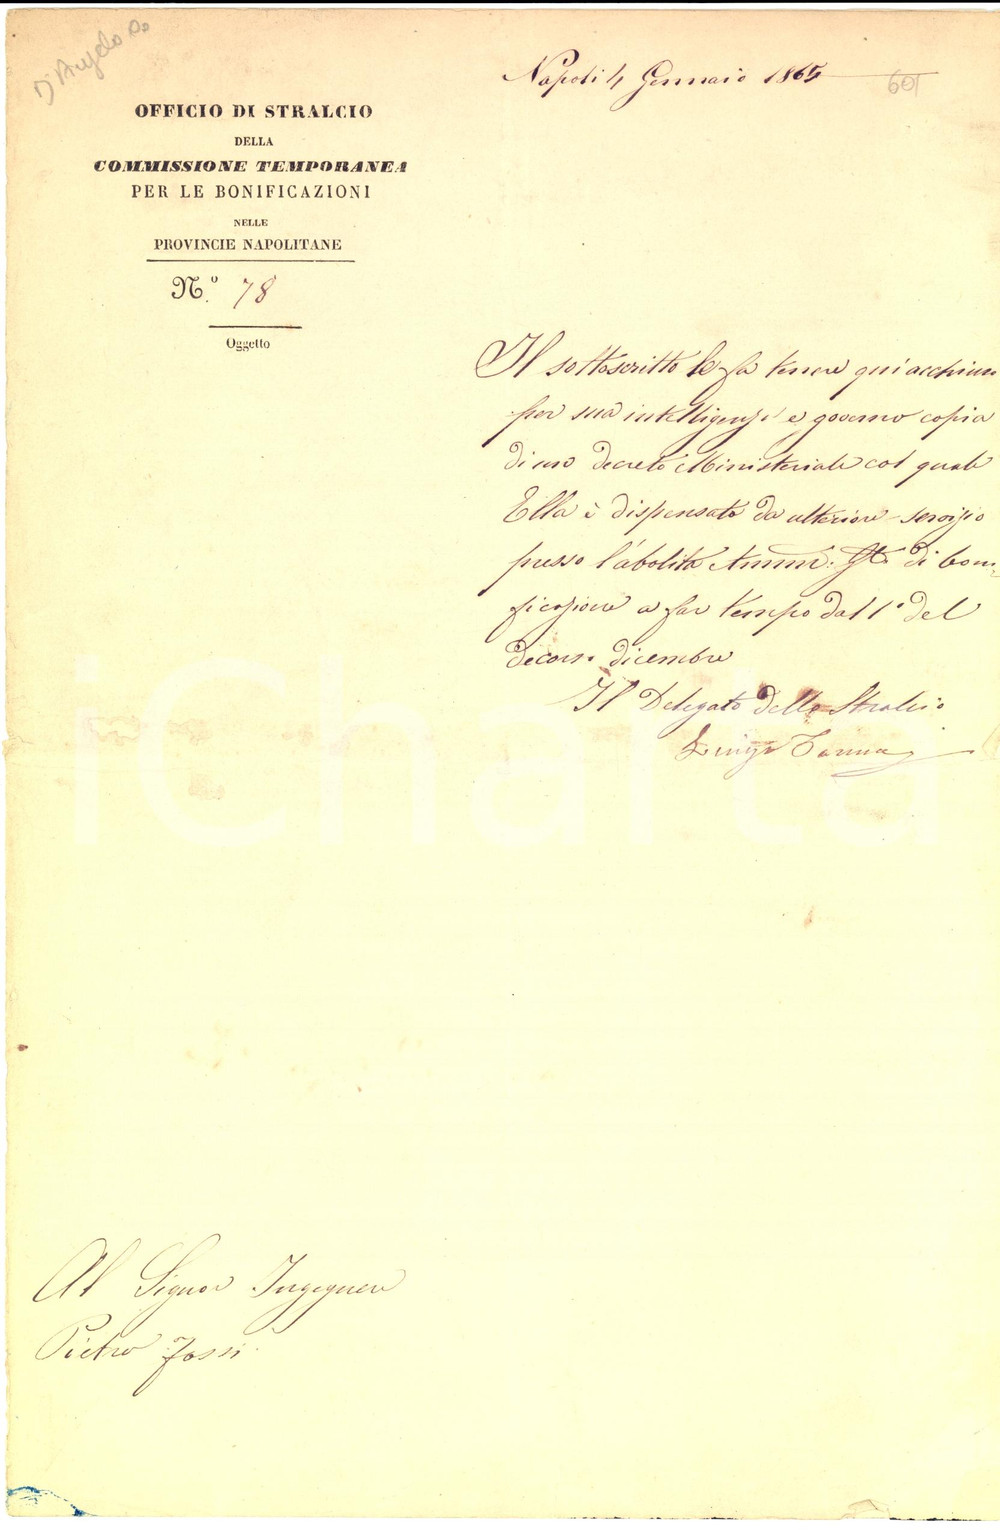 D'Angelo Do
Napoli 4 Gennaio 1865
601
OFFICIO DI STRALCIO
DELLA
COMMISSIONE TEMPORANEA
PER LE BONIFICAZIONI
NELLE
PROVINCIE NAPOLITANE
N.º 78
Oggetto
Il sottoscritto le fa tenere qui acchiusa
per sua intelligenza e governo copia
di un decreto Ministeriale col quale
Ella è dispensato da ulteriore servizio
presso l'abolita Amm. Gle. di boni-
ficazione a far tempo dal 1º del
decorso dicembre
Il Delegato dello Stralcio
Luigi
Al Signor Ingegnere
Pietro Fossi
iCharta